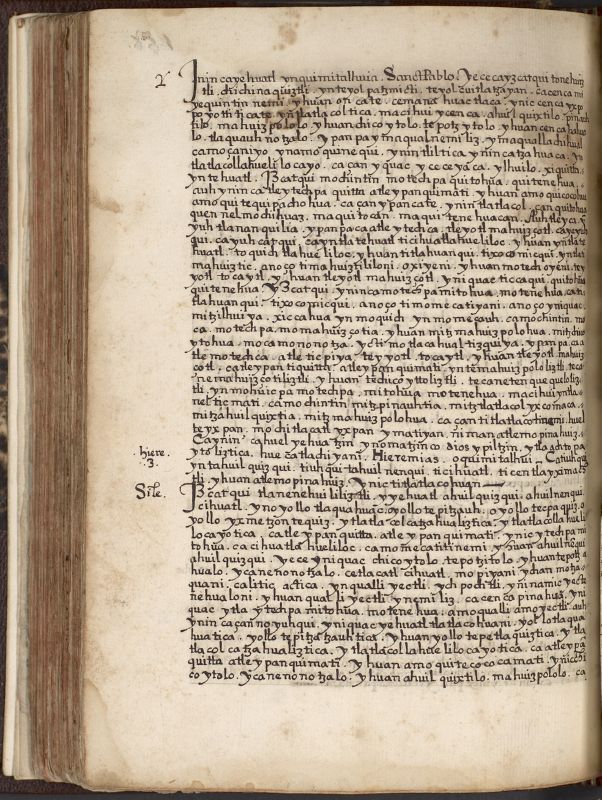 2
Inin ca yehuatl yn qui mitalhuia . Sanct Pablo . Ye ce ca yz catqui tonehuiz
tli . chichinaquiztli . yn teyol patzmicti .
yequintin nemi yhuan on cate . cemanahuac tlaca . ynic cenca yxpo
poyotticate yn tlatlacoltica . macihuy yenca . ahuilquixtilo . pinauh
tilo . mahuizpololo yhuan chico ytolo . tepotz ytolo . yhuan cenca
lo . tlaquauh notzalo . Y pan pa ynaqual nemiliz . ynaqualla chihual
camo can iyo ynamo quinequi . Ynin tliltica ynin catzahuaca . yn
tlatlacollahuelilocayo . ca can yquac yceceyaca . ylhuilo .
yn tehuatl . Iz catqui mochintin motechpa quitohua . quitenehua .
auh ynin ca atle ytechpa quitta atle ypan quimati . yhuan amo
amo quitequipachohua . ca can ypan cate . ynin tlatlacol . can quitohua
quen nel mochihuaz . ma quitocan . ma quitenehuacan . Auh tleyca
yuh tlananquilia . ypanpa ca atle ytechca . tleyotl mahuizcotl .
qui . ca yuh catqui . ca yn tla tehuatl ticihuatlahueliloc . yhuan yntla te
huatl . toquichtlahueliloc . yhuan titlahuanqui . tixocomicqui . yntla
mahuiztic . anoço timahuiztililoni . oxiyeni . yhuan motech oyeni . te
yotl tocaytl . yhuan tleyotl mahuizcotl . yniquac ticcaqui . quitohua
quitenehua . Yz catqui . ynin ca motechpa mitohua . motenehua ca ti
tlahuanqui . tixocomicqui . anoço timomecatiyani . anoço yniquac
mitzilhuiya . xiccahua yn moquich yn momeçauh . ca mochintin . mo
ca . motechpa . momahuizçotia . yhuan mitzmahuizpolohua . mitzchico
ytohua . mocamononotza . yc timotlacahualtizquiya . ypanpa ca a
tle motechca . atle ticpiya . teyyotl tocaytl . yhuan tleyotl mahuiz
cotl . ca atleypan tiquitta . atleypan quimati ynte mahuizpololiztli . teca
nemahuizcotiliztli . yhuan techico ytoliztli . tecanetenquequeloliz
tli . yn mohuicpa motechpa . mitohua motenehua . macihui yntla
neltic mati . ca mochintin mitzpinauhtia . mitztlatlacol yxcomaca .
mitzahuilquixtia . mitzmahuizpolohua . ca can titlatlacotinemi . huel
te yxpan . mochi tlacatl yxpan ymatiyan . in man atle mopinahuiz .
Ca ynin ca huel yehuatzin ynomatzinco Dios ypiltzin .
ytoliztica . hue catlachiyani . Hieremias . oqui mitalhui .
hiere.
3.
yn tahuilquizqui . tiuhqui tahuilnenqui . ticihuatl . ti centlayximach
tli . yhuan atle mopinahuiz . Ynic titlatlacohuan
Sile.
Iz catqui tlanenehuililiztli . yyehuatl ahuilquizqui . ahuilnenqui .
cihuatl . ynoyollo tlaquahuac . oyollo tepitzauh . oyollotecpaquiz . o
yollo yxmetzontequiz . ytlatlacol catzahualiztica . ytlatlacollahueli
locayotica . ca atle ypan quitta . atle ypan quimati . ynic ytechpa mi
tohua . ca cihuatlahueliloc . ca momecatitinemi . yhuan ahuilnenqui
ahuilquizqui . Yece yniquac chico ytolo . tepotz itolo . yhuan tepotz a
hualo . ycanenonotzalo . cetlacatl cihuatl . mopiyani yhan motza
quani . calitic actica . ynqualli yectli . ychpochtli . ynin amic yecte
nehualoni . yhuan qualli yectli ynemiliz . ca cenca pinahua . yni
quac ytla ytechpa mitohua . motenehua . amo qualli amo yectli . auh
ynin ca çan no yuhqui . yniquac yehuatl tlatlacohuani . yollotlaqua
huatica . yollotepitzatzauhtica . yhuan yollotepetlaquiztica . ytla
tlacol catzahualiztica . ytlatlacollahuelilocayotica . ca atleypan
quitta atle ypan quimati . yhuan amo quitecococamati . ynic chi
co ytolo . ycanenonotzalo . yhuan ahuilquixtilo . mahuizpololo . ca